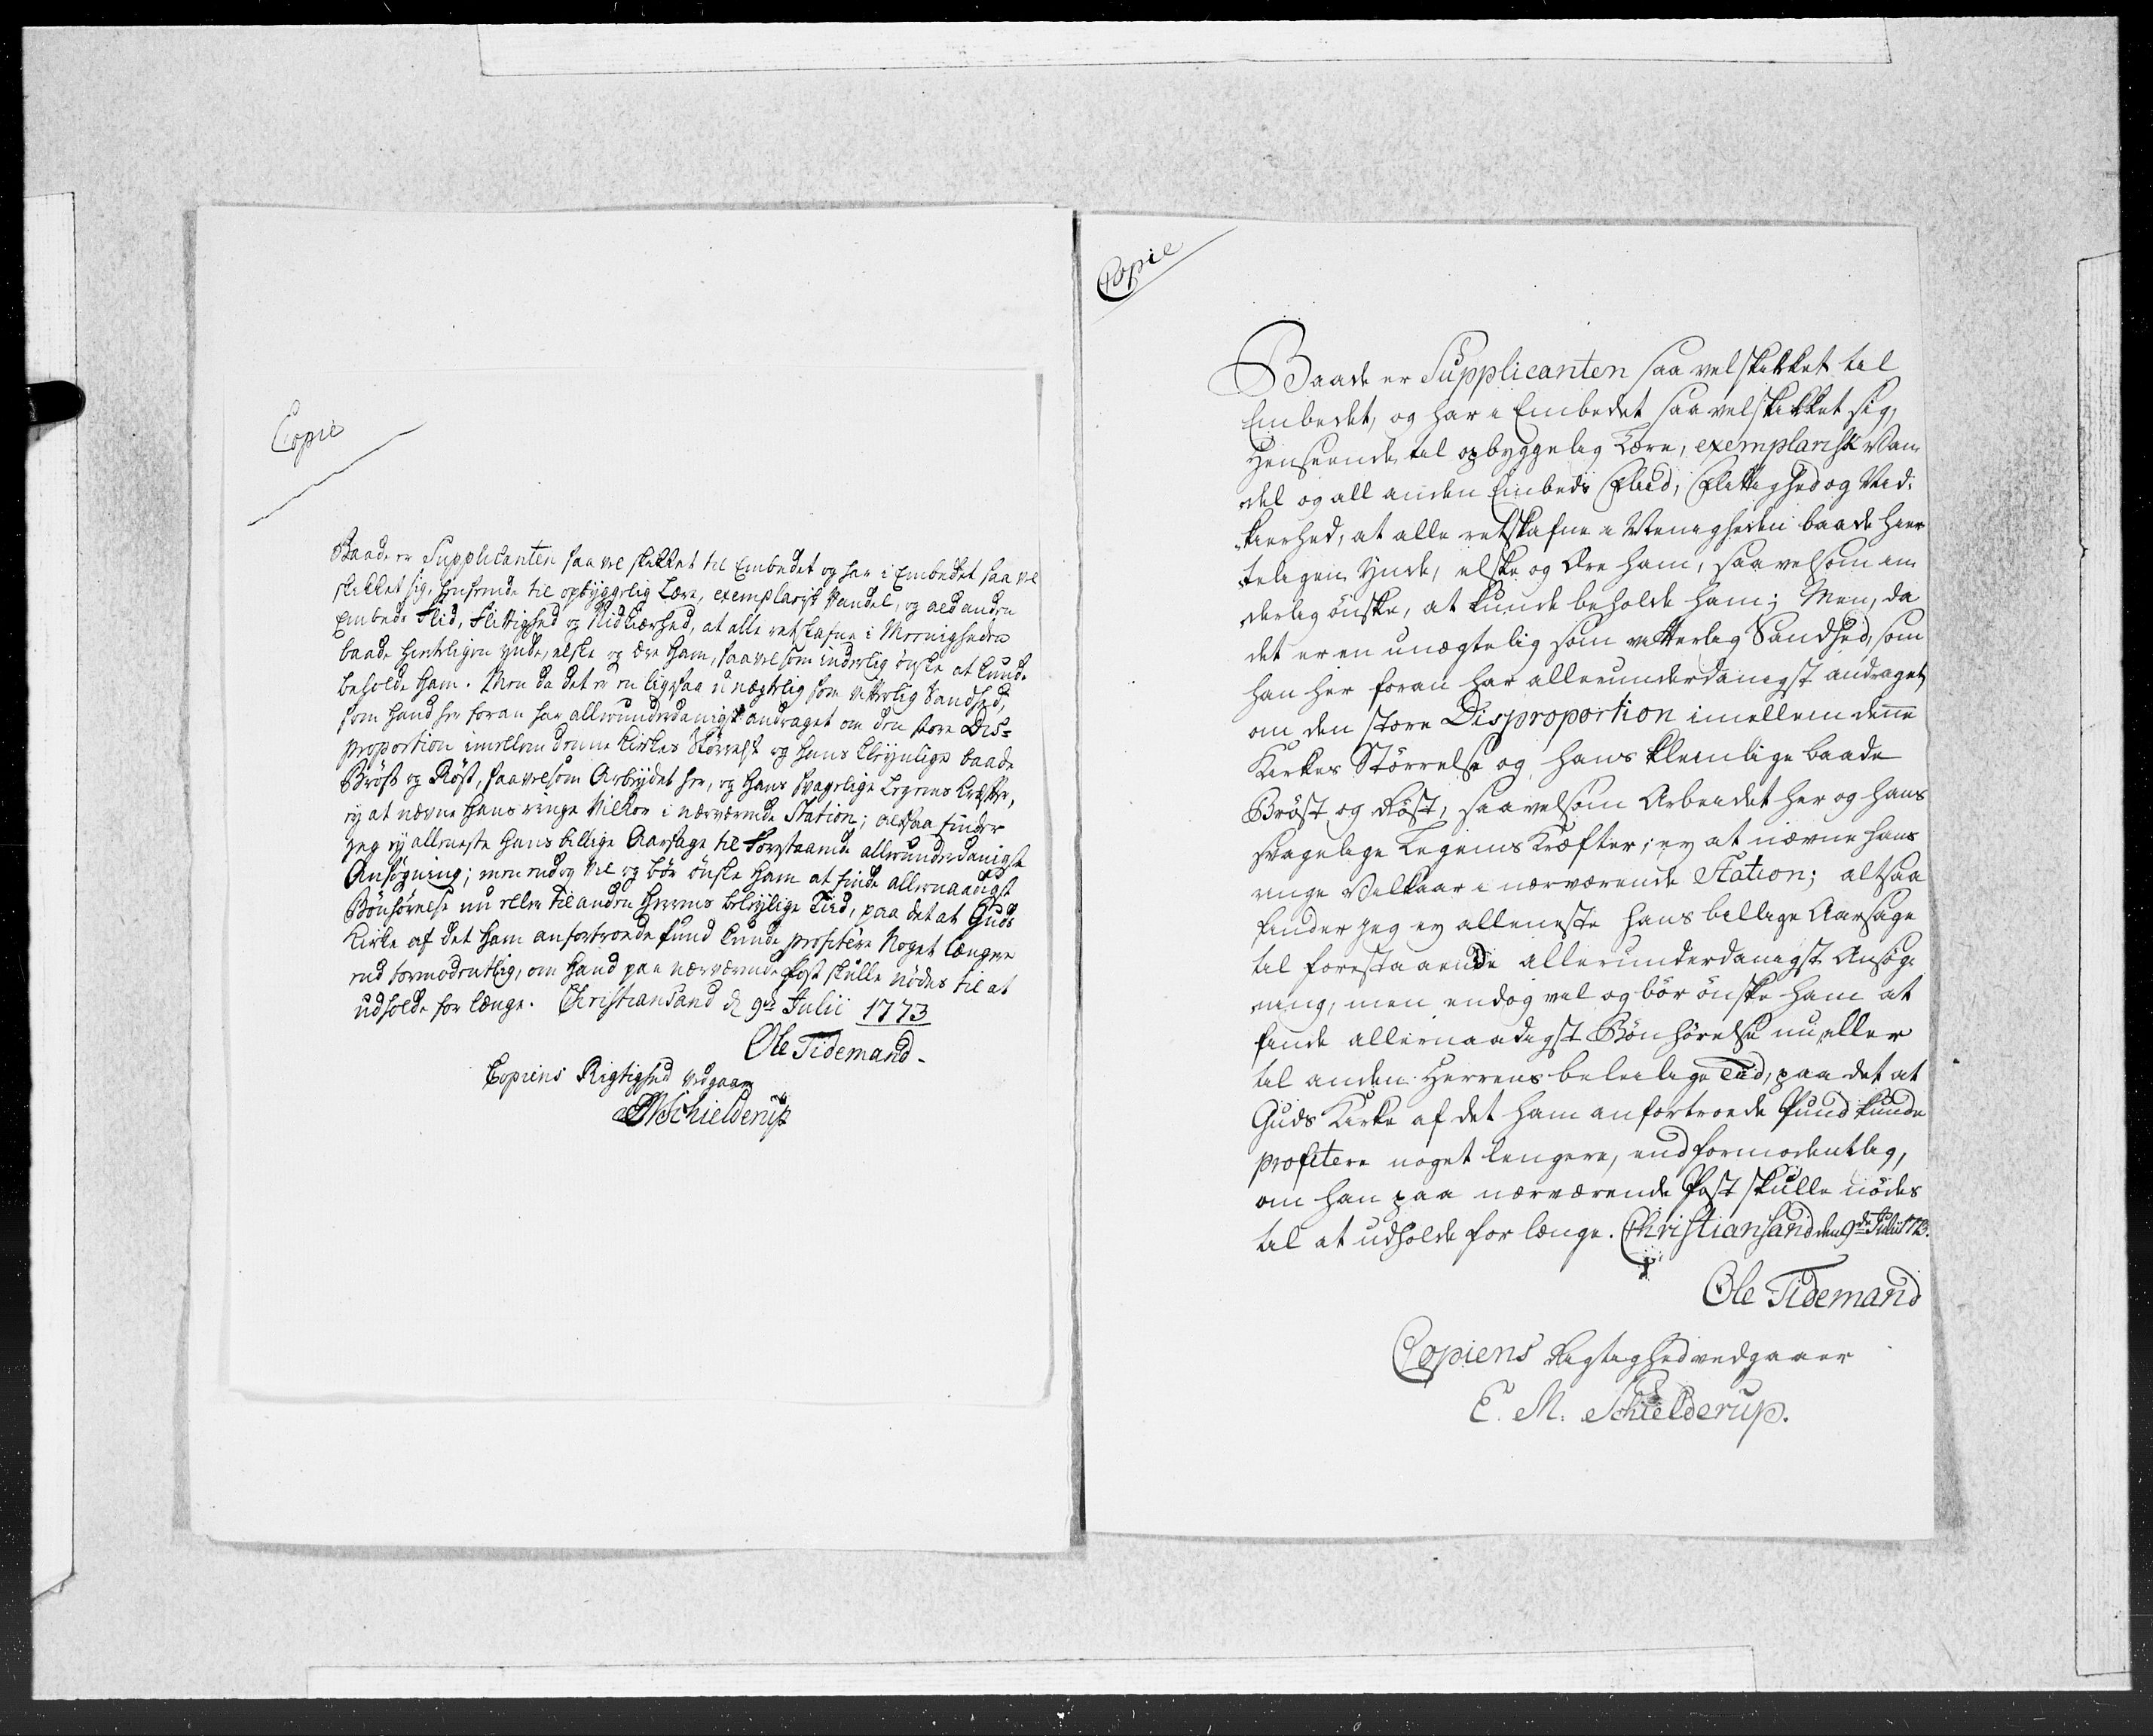 Copie
Baade er Supplicanten saa vel skikket til Embedet og har i Embedet saa vel
skikket sig, henseende til opbyggelig Lære, exemplarisk Vandel, og ald anden
Embeds Flid, Flittighed og Nidkiærhed, at alle retskafne i Meenigheden
baade hierteligen ynde, elske og ære Ham, saavelsom inderlig ønske at kunde
beholde Ham. Men da det er en ligesaa unægtelig som vitterlig Sandhed,
som Hand her foran har allerunderdanigst andraget om den store Dis-
proportion imellem denne Kirkes Størrelse og hans kleynlige baade
Bröst og Röst, saavelsom Arbeydet her, og hans svagelige Legems Kræfter,
ey at nævne hans ringe Vilkor i nærværende Station; altsaa finder
jeg ey alleneste hans billige Aarsage til forestaaende allerunderdanigste
Ansögning; men endog vil og bör önske Ham at finde allernaadigst
Bönhörelse nu eller til anden Herrens beleylige Tiid, paa det at Guds
Kirke af det Ham anfortroede Pund kunde profitere noget længere
end formodentlig, om Hand paa nærværende Post skulle nödes til at
udholde for længe. Christiansand d 9de Julii 1773
Ole Tidemand
Copiens Rigtighed vedgaaer
EM Schielderup
Copie
Baade er Supplicanten saa vel skikket til
Embedet, og har i Embedet saa vel skikket sig,
Henseende til opbyggelig Lære, exemplarisk Van
del og all anden Embeds Flid, Flittighed og Nid-
kierhed, at alle retskafne i Menigheden baade hier
teligen Ynde, elske og Ære ham, saavelsom in
derlig önske, at kunde beholde ham; Men, da
det er en unægtelig som vitterlig Sandhed, som
han her foran har allerunderdanigst andraget,
om den store Disproportion imellem denne
Kirkes Störrelse og hans kleinlige baade
Bröst og Röst, saavelsom Arbeidet her og hans
svagelige Legems Kræfter; ey at nævne hans
ringe Vilkaar i nærværende Station; altsaa
finder jeg ey alleneste hans billige Aarsage
til forestaaende allerunderdanigst Ansög-
ning, men endog vil og bör önske ham at
finde allernaadigst Bönhörelse nu eller
til anden Herrens beleilige Tiid, paa det at
Guds Kirke af det ham anfortroede Pund kunde
profitere noget lengere, end formodentlig,
om han paa nærværende Post skulle nödes
til at udholde for længe. Christiansand den 9de Julii 1773.
Ole Tidemand
Copiens Rigtighed vedgaaer
E. M. Schielderup.